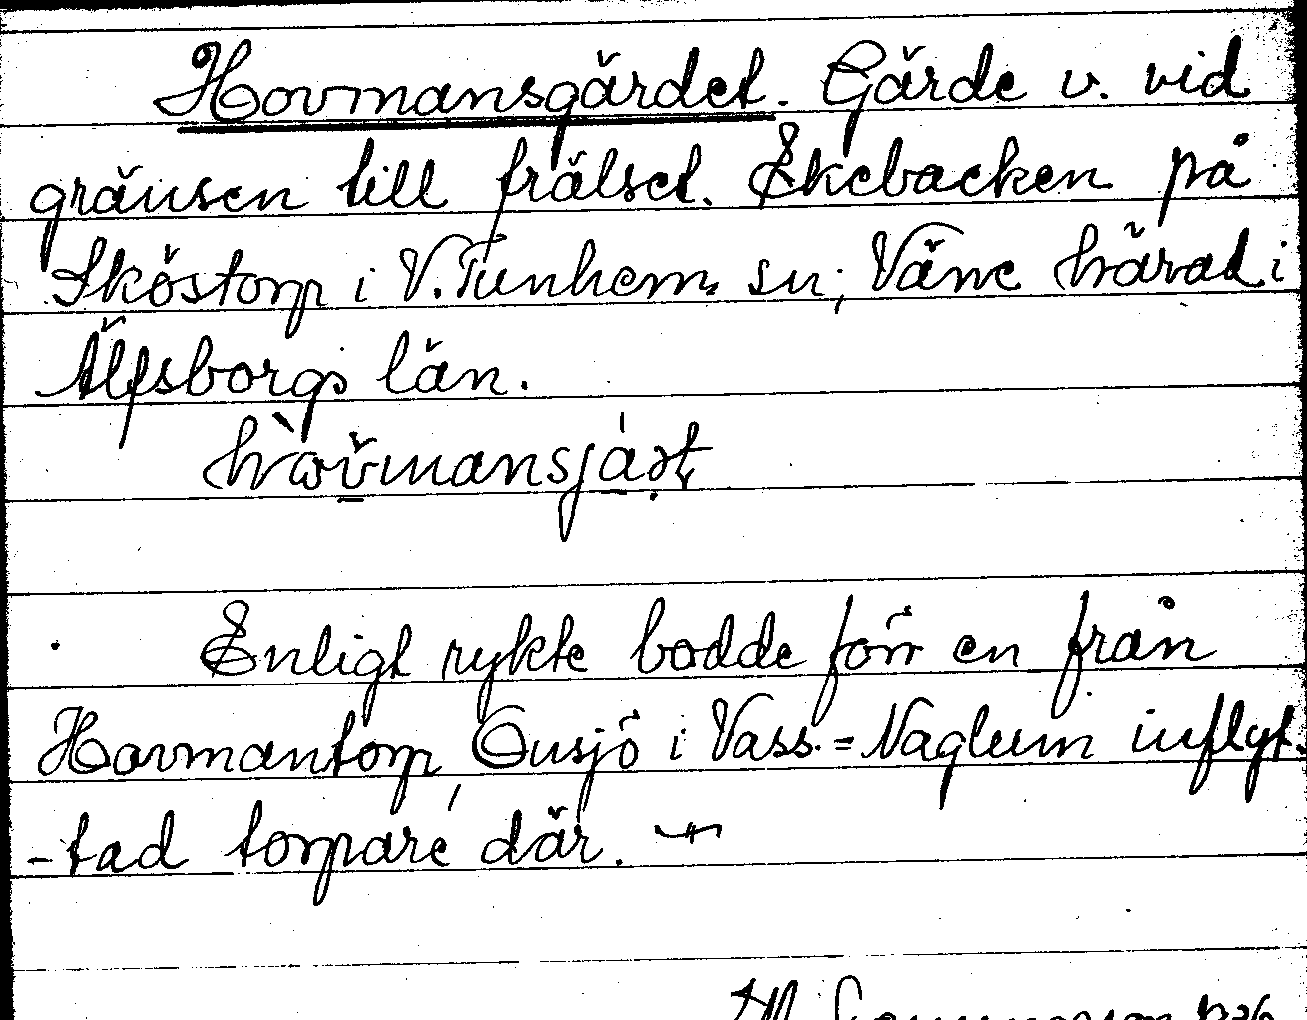 Hovmansgärdet. Gärde v. vid
gränsen till frälset. Ekebacken på
Sköstorp i V. Tunhem. sn; Väne härad i
Älfsborgs län.
Enligt rykte bodde förr en från
Hovmantorp, Onsjö i Vass.=Naglum inflyt.
-tad torpare där.